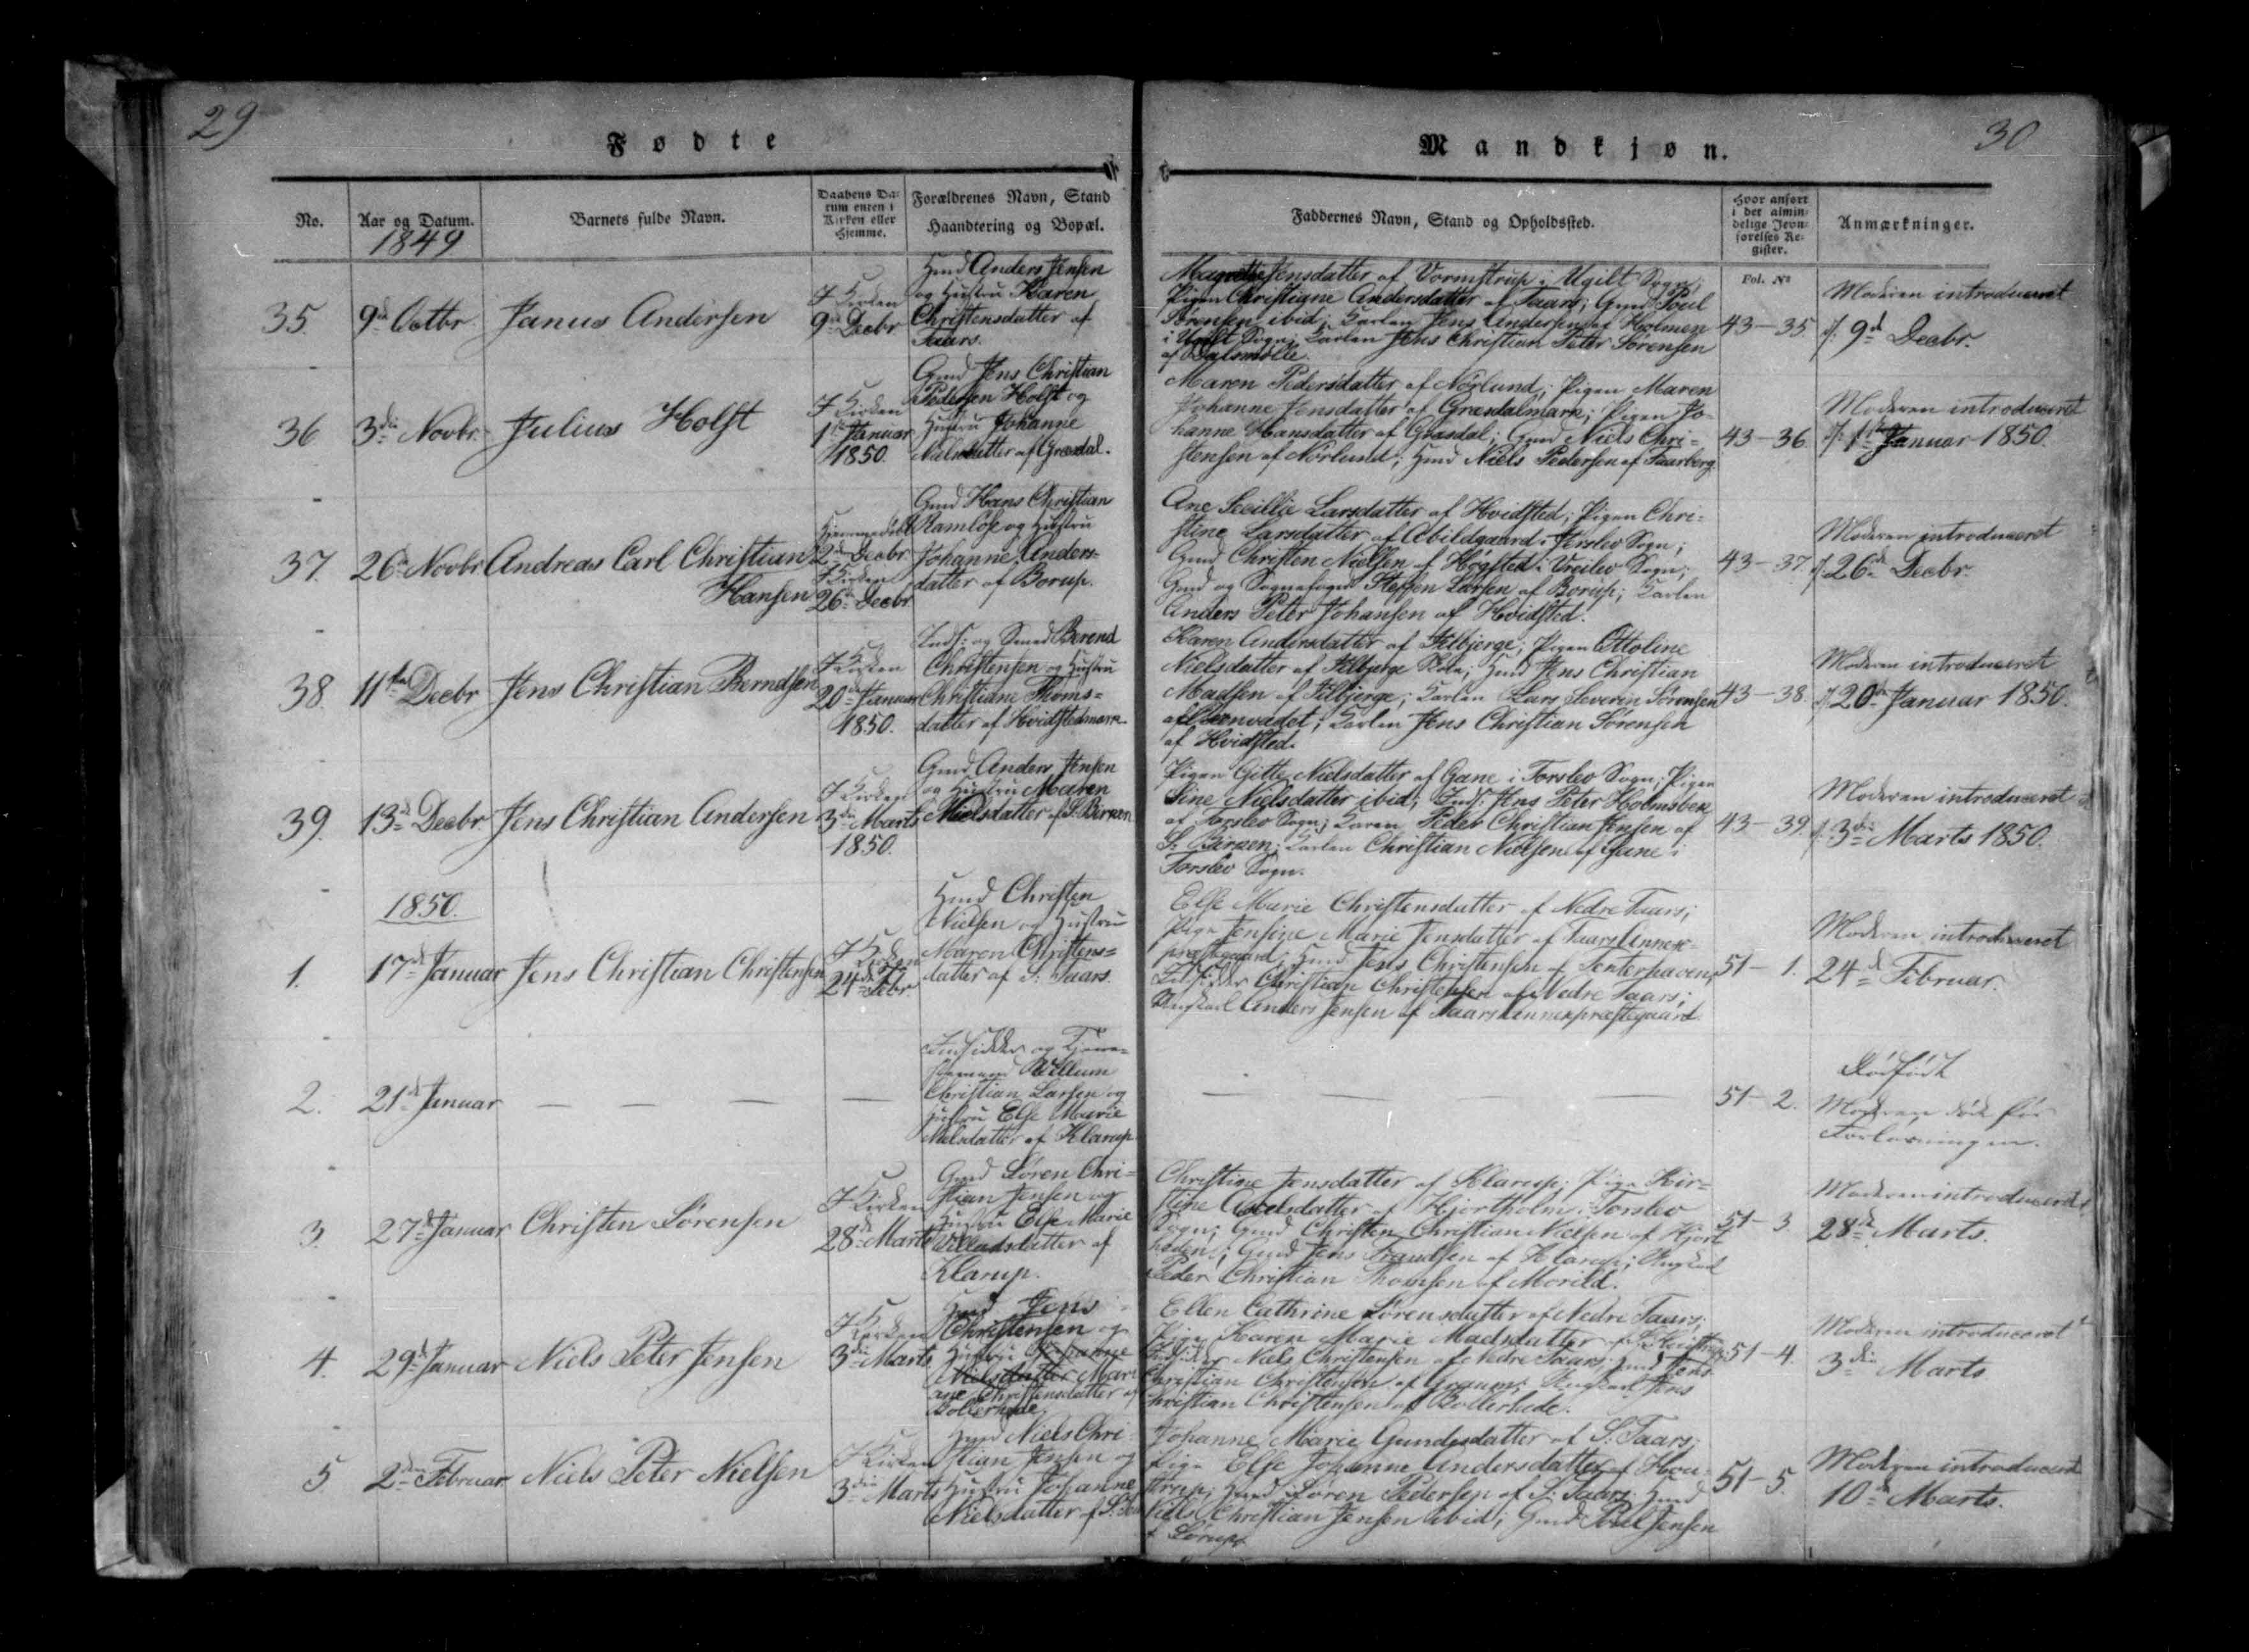 29
Fødte
No.
Aar og Datum.
1849
Barnets fulde Navn.
Daabens Da-
tum enten i
Kirken eller
Hjemme.
Forældrenes Navn, Stand
Haandtering og Bopæl.
35.
9d Octbr
Janus Andersen
I Kirken
9d Decbr
Hmd Anders Jensen
og Hustru Karen
Christensdatter af
Taars.
36
3die Novbr.
Julius Holst
I Kirken
1ste Januar
1850.
Gmd Jens Christian
Pedersen Holst og
Hustru Johanne
Nielsdatter af Græsdal.
37.
26d Novbr
Andreas Carl Christian
Hansen
Hjemmedøbt
2den Decbr
I Kirken
26d Decbr.
Gmd Hans Christian
Ramløse og Hustru
Johanne Anders=
datter af Borup.
38.
11te Decbr
Jens Christian Berndsen
I Kirken
20de Januar
1850.
Inds: og Smed Berend
Christensen og Hustru
Christiane Thoms=
datter af Hvidstedmark
39.
13d Decbr.
Jens Christian Andersen
I Kirken
3die Marts
1850.
Gmd Anders Jensen
og Hustru Maren
Nielsdatter af S. Bersen
1850.
1.
17d Januar
Jens Christian Christensen
I Kirken
24d Febr
Hmd Christen
Nielsen og Hustru
Maren Christens=
datter af S. Taars.
2.
21d Januar
— — — —
Indsidder og
Willum
Christian Larsen og
Hustru Else Marie
Nielsdatter af Klarup
3.
27d Januar
Christen Sørensen
I Kirken
28d Marts
Gmd Søren Chri=
stian Jensen og
Hustru Else Marie
Villadsdatter af
Klarup.
4.
29d Januar
Niels Peter Jensen
I Kirken
3die Marts
Hmd Jens
Christensen og
Hustru Johanne
Nielsdatter Mari
ane Christensdatter af
Bollerhede.
5
2den Februar
Niels Peter Nielsen
I Kirken
3die Marts
Hmd Niels Chri
stian Jensen og
Hustru Johanne
Nielsdatter af S.
30
Mandkjøn.
Faddernes Navn, Stand og Opholdssted.
Hvor anført
i det almin-
delige Jevn-
førelses Re-
gister.
Anmærkninger.
Fol. No
Jensdatter af Vormstrup i Ugilt Sogn;
Pigen Christiane Andersdatter af Taars; Gmd Poul
Sørensen ibid; Karlen Jens Andersen af Holmen
i Ugilt Sogn; Karlen Jens Christian Peter Sørensen
af
43 — 35.
Moderen introduceret
d. 9d Decbr.
Maren Pedersdatter af Nörlund; Pigen Maren
Johanne Jensdatter af Græsdalmark; Pigen Jo-
hanne Hansdatter af Græsdal; Gmd Niels Chri=
stensen af Nörlund; Hmd Niels Pedersen af Taarberg
43 — 36
Moderen introduceret
d. 1ste Januar 1850.
Ane Larsdatter af Hvidsted; Pigen Chri=
stine Larsdatter af Abildgaard i Jerslev Sogn;
Gmd Christen Nielsen af Høgsted i Vreilev Sogn;
Gmd og Sognefoged Steffen Larsen af Borup; Karlen
Anders Peter Johansen af Hvidsted.
43 — 37.
Moderen introduceret
d. 26d Decbr.
Karen Andersdatter af Ilbjerge; Pigen Ottoline
Nielsdatter af Ilbjerge; Hmd Jens Christian
Madsen af Ilbjerge; Karlen Lars Severin Sørensen
Karlen Jens Christian Sørensen
af Hvidsted.
43 — 38.
Moderen introduceret
d. 20de Januar 1850.
Pigen Gitte Nielsdatter af Gane i Torslev Sogn; Pigen
Sine Nielsdatter ibid; Inds. Jens Peter
af Torslev Sogn; Karlen Peder Christian Jensen af
S. Bersen; Karlen Christian Nielsen af Gane i
Torslev Sogn.
43 — 39.
Moderen introduceret
d. 3die Marts 1850.
Else Marie Christensdatter af Nedre Taars;
Pige Jensine Marie Jensdatter af Taars Annex=
præstegaard; Hmd Jens Christensen af
Indsidder Christian Christensen af Nedre Taars;
Ungkarl Anders Jensen af Taars Annexpræstegaard
51 — 1.
Moderen introduceret
24d Februar.
— — —
51 — 2.
Dødfødt
Moderen døde før
Forløsningen.
Christine Jensdatter af Klarup; Pige Kir=
stine datter af Hjortholm i Torslev
Sogn; Gmd Christen Christian Nielsen af Hjort
Gmd Jens af Klarup; Ungkarl
Peder Christian Thomsen af Morild.
51 — 3.
Moderen introduceret
28d Marts.
Ellen Cathrine Sørensdatter af Nedre Taars;
Pige Karen Marie Madsdatter af
Indsidder Niels Christensen af Nedre Taars; Hmd Jens
Christian Christensen af Graum; Ungkarl Jens
Christian Christensen af Bollerhede.
51 — 4.
Moderen introduceret
3die Marts
Johanne Marie Gundesdatter af S. Taars;
Pige Else Johanne Andersdatter af Hou-
strup; Hmd Søren Pedersen af S. Taars; Hmd
Niels Christian Jensen ibid; Gmd Poul Jensen
af Lørup.
51 — 5.
Moderen introduceret
10d Marts.